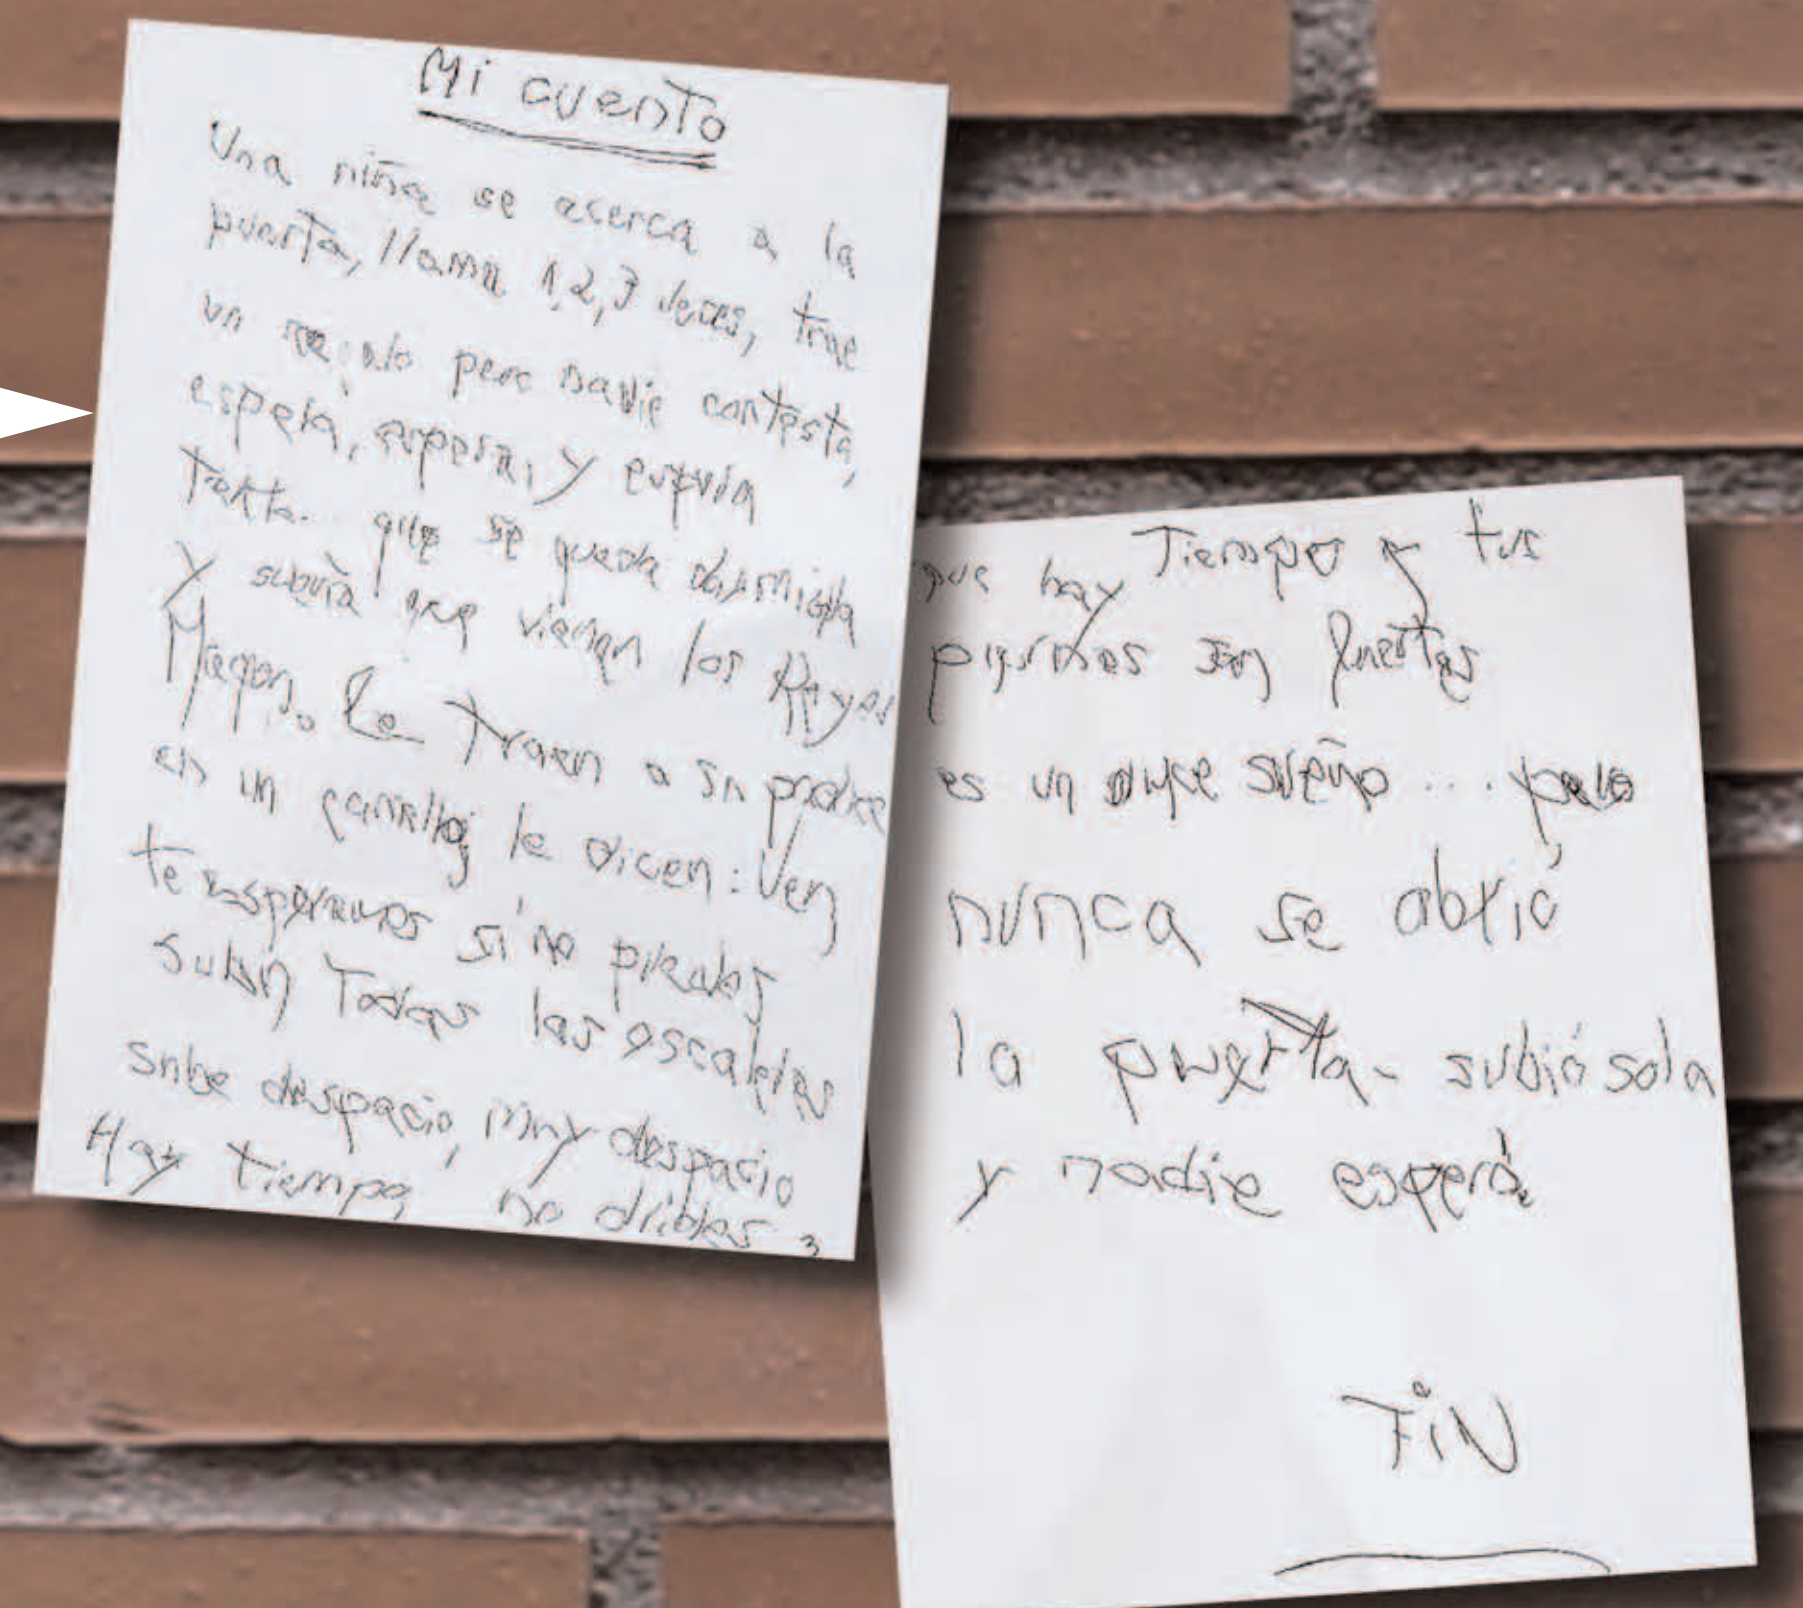 Mi cuento
Una niña se acerca a la
puerta, llama 1,2,3 veces, trae
un pero nadie contesta,
espera, espera, y espera
tanto.. que se queda dormida
y sueña que vienen los Reyes
Magos. Le traen a su padre
en un camello, le dicen: Ven
te esperamos si no puedes
subir Todas las escaleras
sube despacio, muy despacio
Hay tiempo, no dudes,
que hay Tiempo y tus
piernas son fuertes
es un dulce sueño ... pero
nunca se abrió
la puerta- subió sola
y nadie esperó.
FiN